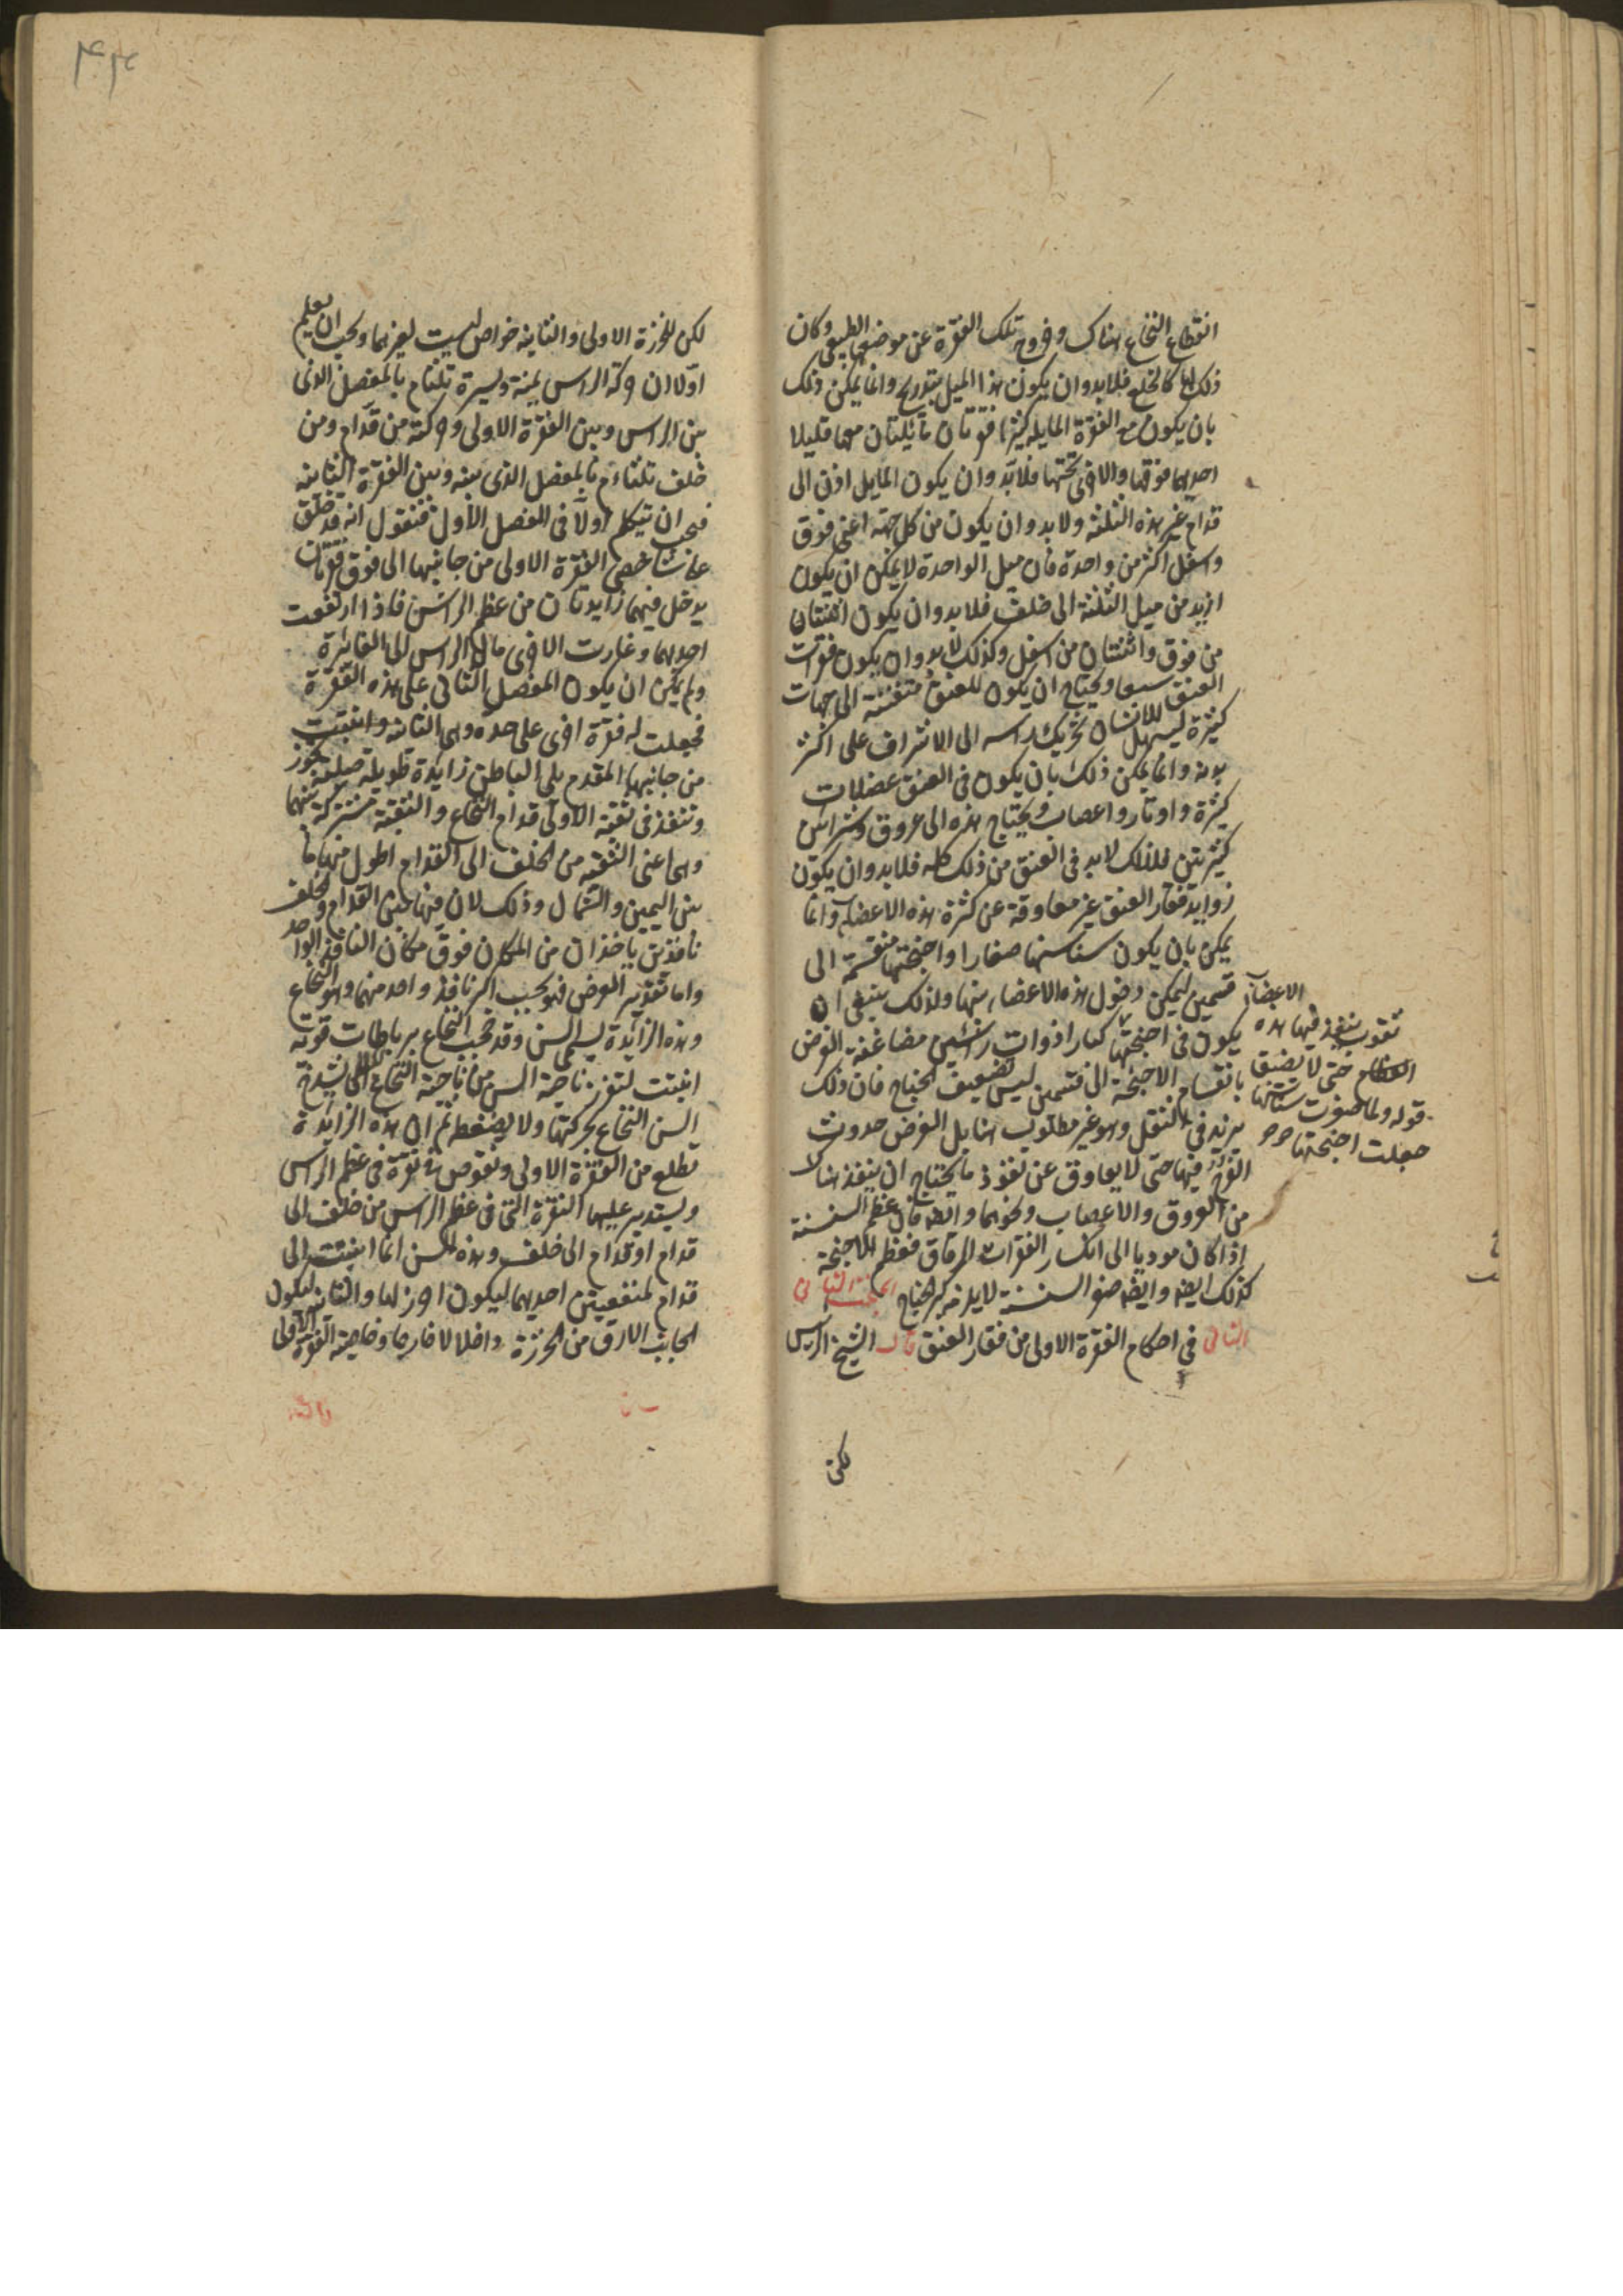 انقطاع النخاع هناك وخروج تلك الفقرة عن موضعها الطبيعى وكان
ذلك لها كالخلع فلابد وان يكون هذا الميل بتدريج وانما يمكن ذلك
بان يكون مع الفقرة المايلة كثيرا فقرتان مائلتان معها قليلا
احديهما فوقها والاخرى تحتها فلابد وان يكون المايل اذن الى
قدام غير هذه الثلثة ولابد وان يكون من كل جهة اعنى فوق
واسفل اكثر من واحدة فان ميل الواحدة لا يمكن ان يكون
ازيد من ميل الثلثة الى خلف فلابد وان يكون اثنتان
من فوق واثنتان من اسفل وكذلك لابد وان يكون فقرات
العنق سبعا ويحتاج ان يكون للعنق متفننة الى جهات
كثيرة ليسهل للانسان تحريك راسه الى الاشراف على اكثر
بدنه وانما يمكن ذلك بان يكون فى العنق عضلات
كثيرة واوتار واعصاب ويحتاج هذه الى عروق وشرائين
كثيرتين فلذلك لابد فى العنق من ذلك كله فلابد وان يكون
زوايد فقار العنق غير معاوقة عن كثرة هذه الاعضاء وانما
يمكن بان يكون سناسنها صغارا واجنحتها منقسمة الى
قسمين ليمكن دخول هذه الاعضاء بينها ولذلك ينبغى ان
يكون فى اجنحتها كبارا ذوات راسين مضاعفة الغرض
بانقسام الاجنحة الى قسمين ليس تضعيف الجناح فان ذلك
يزيد فى الثقل وهو غير مطلوب هنا بل الغرض حدوث
الفرج فيها حتى لا يعاوق عن نفوذ ما يحتاج ان ينفذ هناك
من العروق والاعصاب ونحوهما وايضا فان عظم السنسنة
اذا كان موديا الى انكسار الفقرات الرقاق فعظم الاجنحة
كذلك ايضا وايضا صغر السنسنة لا يلزمه كبر الجناح المبحث الثانى
الثانى فى احكام الفقرة الاولى من فقار العنق قال الشيخ الرئيس
الاعضاء
ثقوب ينفذ فيها هذه
حتى لا يضيق
قوله ولما صغرت سناسنها
جعلت اجنحتها
لكن
لكن للخرزة الاولى والثانية خواص ليست لغيرهما ويجب ان يعلم
اولا ان حركة الراس يمنة ويسرة تلتئم بالمفصل الذى
بين الراس وبين الفقرة الاولى وحركته من قدام ومن
خلف تلتئم بالمفصل الذى بينه وبين الفقرة الثانية
فيجب ان نتكلم اولا فى المفصل الاول فنقول انه قد خلق
على شاخصى الفقرة الاولى من جانبيها الى فوق نقرتان
يدخل فيهما زايدتان من عظم الراس فاذا ارتفعت
احديهما وغارت الاخرى مال الراس الى الغائرة
ولم يمكن ان يكون المفصل الثانى على هذه الفقرة
فجعلت له فقرة اخرى على حدة وهى الثانية وانبتت
من جانبها المقدم الى الباطن زايدة طويلة صلبة تجوز
وتنفذ فى ثقبة الاولى قدام النخاع والثقبة مشتركة بينهما
وهى اعنى الثقبة من الخلف الى القدام اطول منها ما
بين اليمين والشمال وذلك لان فيما بين القدام والخلف
نافذين ياخذان من المكان فوق مكان النافذ الواحد
واما تقدير العرض فهو بحسب اكبر نافذ واحد منهما وهو النخاع
وهذه الزائدة تسمى السن وقد حجب النخاع برباطات قوية
انبتت لتفرز ناحية السن من ناحية النخاع لئلا يشدخ
السن النخاع بحركتها ولا يضغطه ثم ان هذه الزائدة
تطلع من الفقرة الاولى وتغوص فى نقرة فى عظم الراس
ويستدير عليها النقرة التى فى عظم الراس من خلف الى
قدام او قدام الى خلف وهذه السن انما انبتت الى
قدام لمنفعتين احديهما ليكون احرز لها والثانية ليكون
الجانب الارق من الخرزة داخلا لا خارجا وخاصية الفقرة الاولى